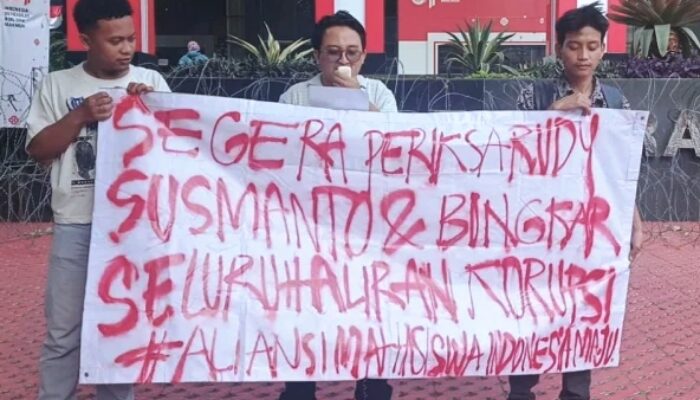 SEGERA PERIKSA RUDY
SUSMANTO & BONGKAR
SELURUH ALIRAN KORUPSI
#ALIANSI MAHASISWA INDONESIA MAJU